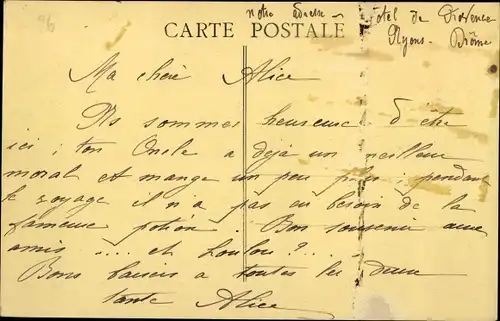 96
notre adresse Hôtel de Provence
CARTE POSTALE
Nyons. Drôme
Ma chère Alice
Ns sommes heureuse d'être
ici ; ton Oncle a déjà un meilleur
moral et mange un peu plus ; pendant
le voyage il n'a pas eu besoin de la
fameuse potion. Bon souvenir aux
amis..... et Loulou ?....
Bons baisers a toutes les deux
tante Alice